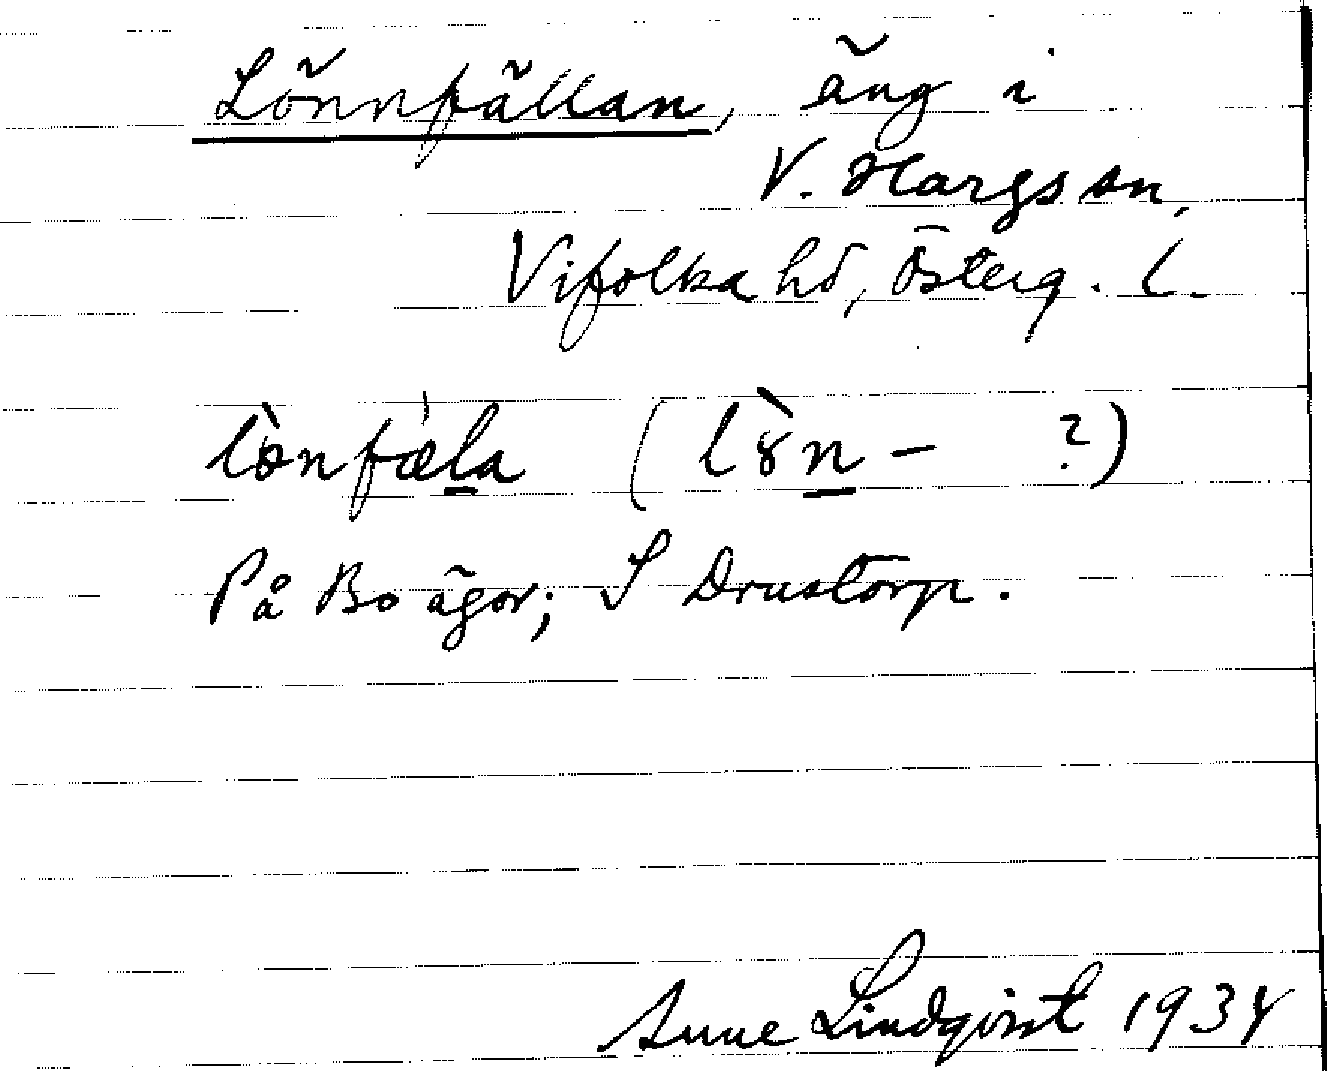 Lönnfällan, äng i
V. Hargs sn,
Vifolka hd, Österg. l.
lònfæ̀la (lòn- ?)
På Bo ägor; S Drustorp.
Sune Lindqvist 1934